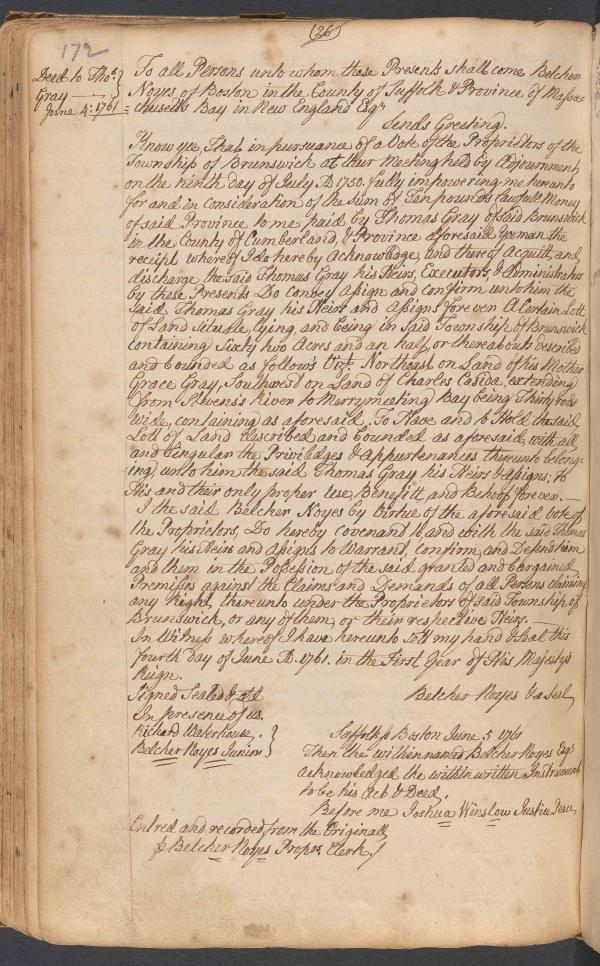 (26)
172
Deed to Thoˢ.
Gray
June 4: 1761
To all Persons unto whom these Presents shall come Belcher
Noyes of Boston in the County of Suffolk & Province of Massa-
chusetts Bay in New England Esqʳ
Sends Greeting.
Know yee That in pursuance of a Vote of the Proprietors of the
Township of Brunswick at their Meeting held by Adjournment
on the ninth day of July AD 1750. fully impowering me hereunto
for and in consideration of the sum of Ten pounds Lawfull Money
of said Province to me paid by Thomas Gray of said Brunswick
in the County of Cumberland, & Province aforesaid Yeoman the
receipt whereof I do hereby Acknowledge, and thereof Acquitt, and
discharge the said Thomas Gray his Heirs, Executors, & Administrators
by these Presents Do convey Assign and confirm unto him the
said Thomas Gray his Heirs and Assigns forever A Certain Lott
of Land Situate, lying, and being in Said Township of Brunswick
containing Sixty two Acres and an half, or thereabouts described
and bounded as follows Vizt. Northeast on Land of his Mother
Grace Gray, Southwest on Land of Charles Casida, extending
from Stevens's River to Merrymeeting Bay being Thirty rods
wide, containing as aforesaid. To Have and to Hold the said
Lott of Land described and bounded as aforesaid, with all
and singular the Priviledges & Appurtenances thereunto belong-
ing, unto him the said Thomas Gray his Heirs & Assigns; to
His and their only proper Use, Benefitt, and Behoof forever. —
I the said Belcher Noyes by Virtue of the aforesaid Vote of
the Proprietors, Do hereby covenant to, and with the said Thomas
Gray his Heirs and Assigns to Warrant, Confirm, and Defend him
and them in the Possession of the said granted and bargained
Premisses against the Claims and Demands of all Persons claiming
any Right, thereunto under the Proprietors of said Township of
Brunswick, or any of them, or their respective Heirs. —
In Witness whereof I have hereunto sett my hand & Seal this
fourth day of June AD. 1761. in the First Year of His Majestys
Reign.
Signed Sealed &
Belcher Noyes & a Seal
In presence of us.
Richard Waterhouse,
Belcher Noyes Junior
Suffolk ss Boston June 5 1761
Then the within named Belcher Noyes Esqʳ
acknowledged the within written Instrument
to be his Act & Deed.
Before me Joshua Winslow Justice Peace
Entred and recorded from the Original
Belcher Noyes Propʳˢ Clerk.